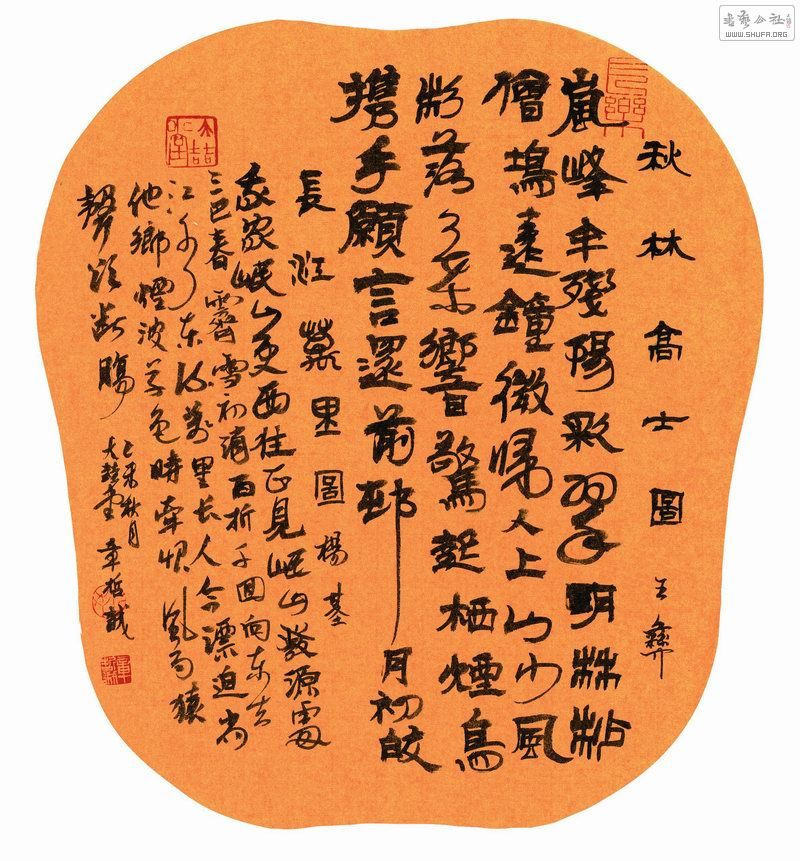 秋林高士圖 王彝
嵐峰半殘陽彩翠明林杪
僧塢遠鐘微歸人上山小風
杉落子葉響驚起栖煙鳥
攜手願言還前邨月初皎
長江萬里圖 楊基
我家岷山更西住正見岷山發源處
三巴春霽雪初消百折千回向東去
江水東流萬里長人今漂泊尚
他鄉煙波草色時牽恨風雨猿
聲欲斷腸
乙未秋月
大喆堂 章哲誠
長樂
大喆堂
書法公社
WWW.SHUFA.ORG